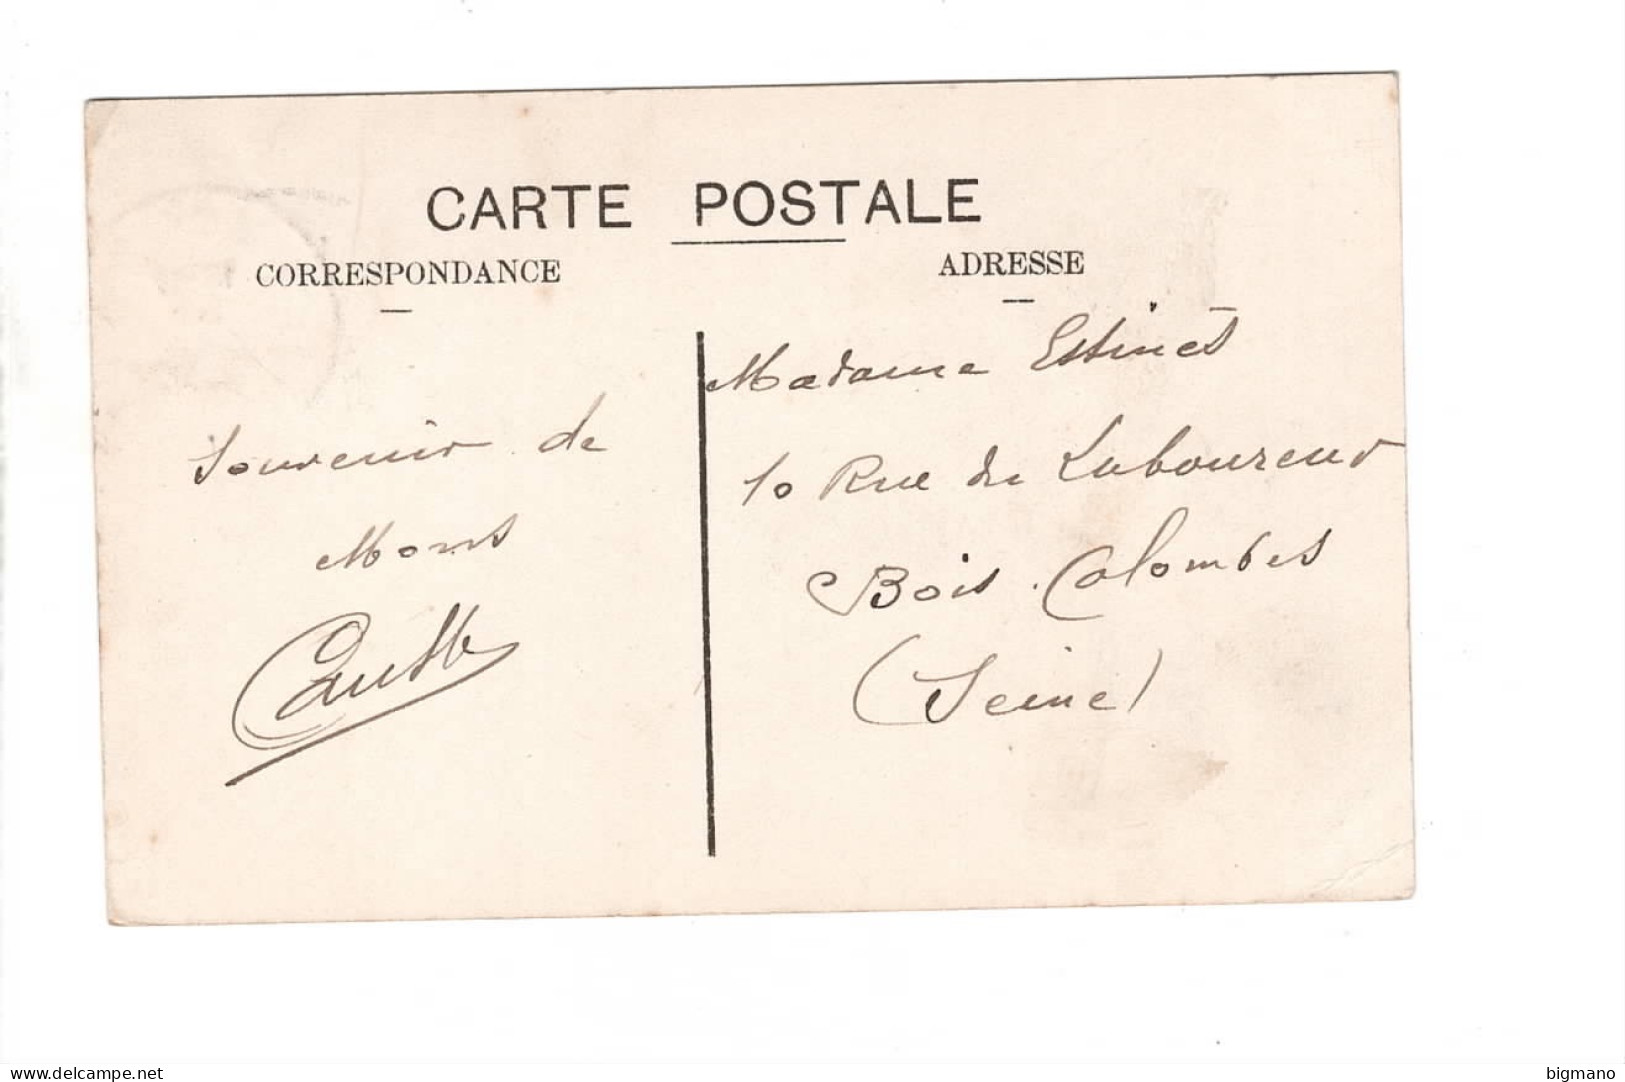 CARTE POSTALE
CORRESPONDANCE
ADRESSE
Souvenir de
Mons
Madame Estinès
10 Rue du Laboureur
Bois-Colombes
(Seine)
www.delcampe.net
bigmano